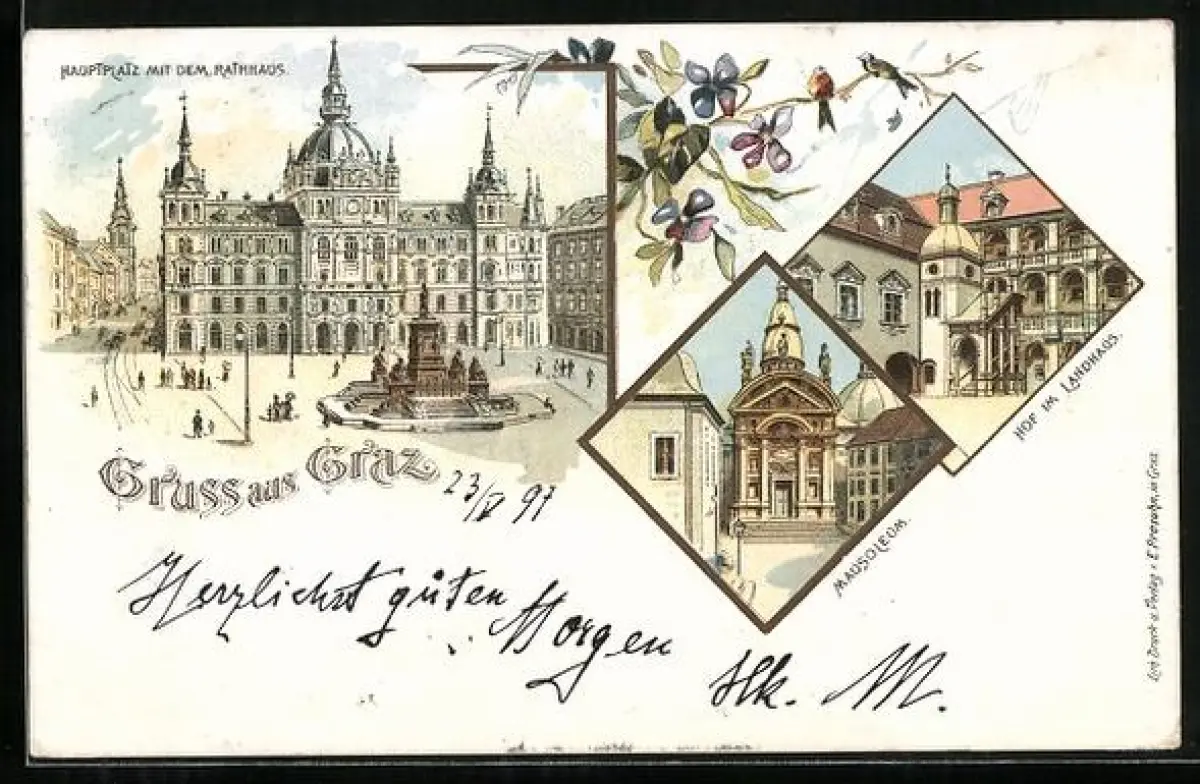 HAUPTPLATZ MIT DEM RATHHAUS.
Gruss aus Graz
23/V 97
HOF IM LANDHAUS.
MAUSOLEUM.
Herzlichst guten Morgen
M.
Druck u. Verlag v. E. in Graz